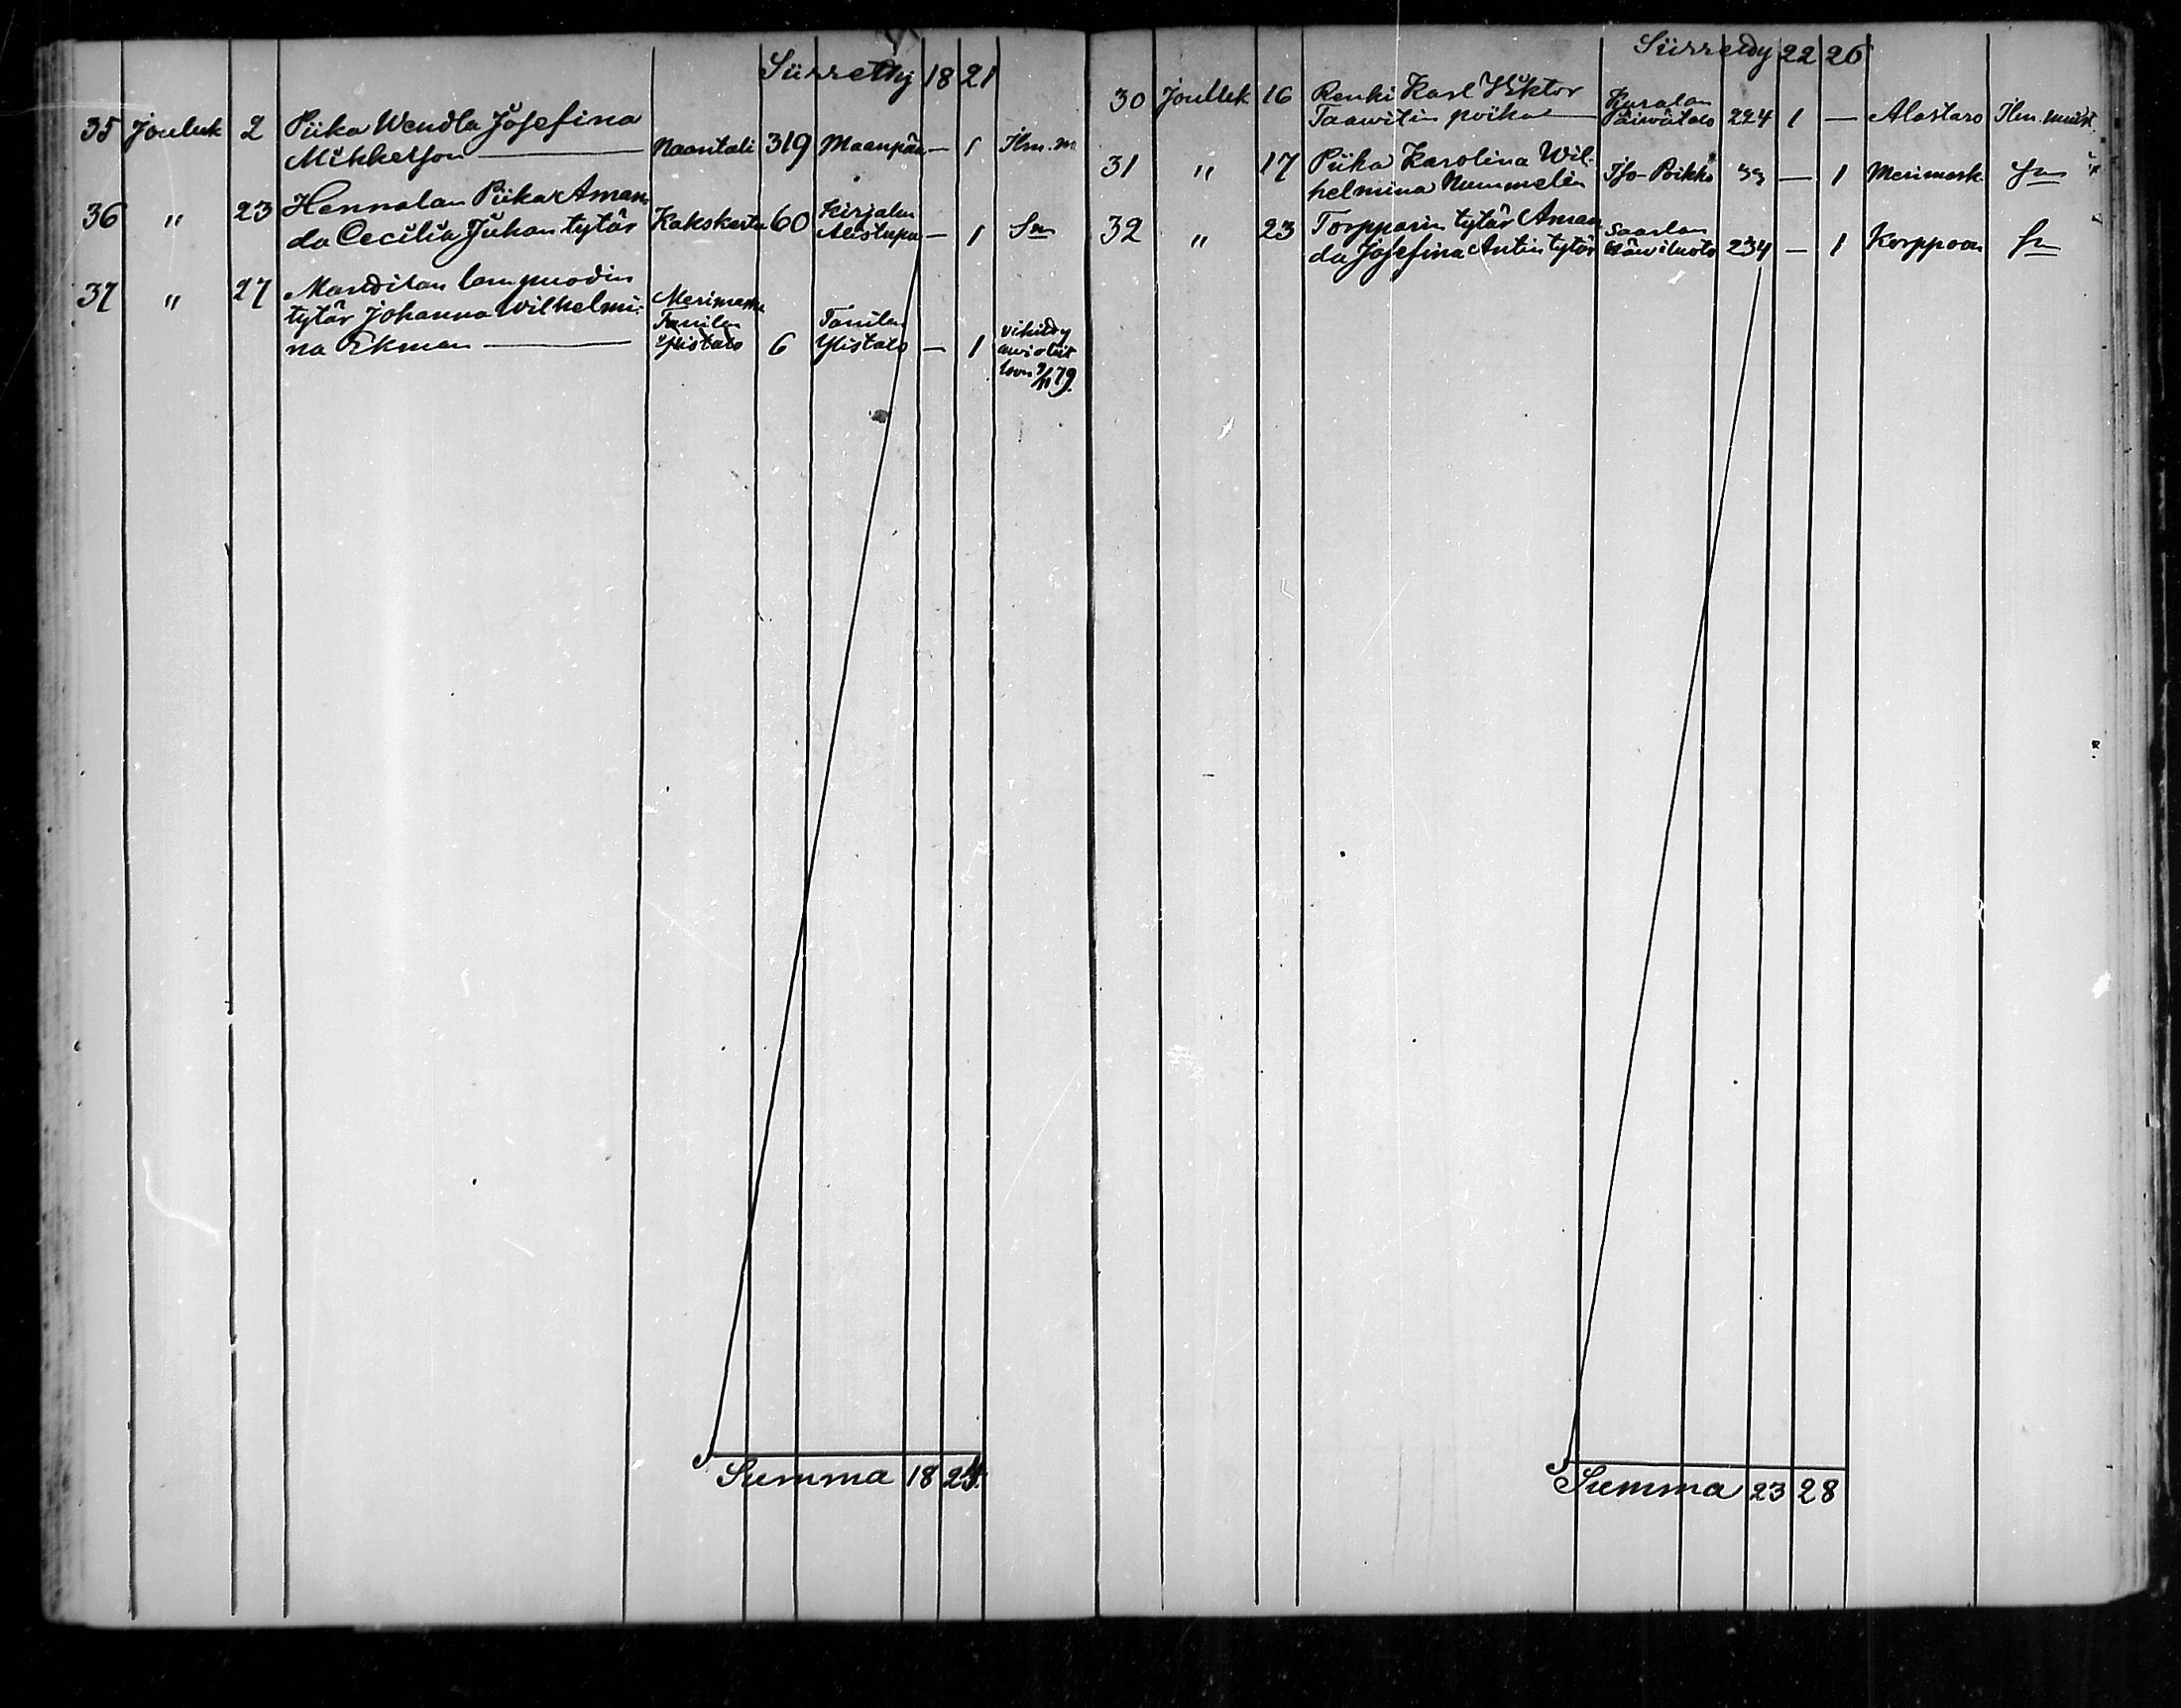 Siirretty 18 21
35 Jouluk 2 Piika Wendla Josefina
Mikkelson — Naantali 319 Maanpää — 1 Ilm. m
36 " 23 Hennalan Piika Aman-
da Cecilia Juhan tytär Kakskerta 60 Kirjalan Alistupa — 1 Sm
37 " 27
tytär Johanna Wilhelmi-
na Ekman — Merimasku Tanilan Ylistalo 6 Tanilan Ylistalo — 1 vihitty
avioliit
toon 9/11 79.
Summa 18 24.
Siirretty 22 26
30 Jouluk 16 Renki Karl Viktor
Taawitin poika — Kuralan Päiwätalo 224 1 — Alastaro Ilm. muist.
31 " 17 Piika Karolina Wil-
helmina Nummelin Iso-Poikko — 1 Merimask. Sm
32 " 23 Torpparin tytär Aman
da Josefina Antin tytär Saarlan 234 — 1 Korppoon Sm
Summa 23 28